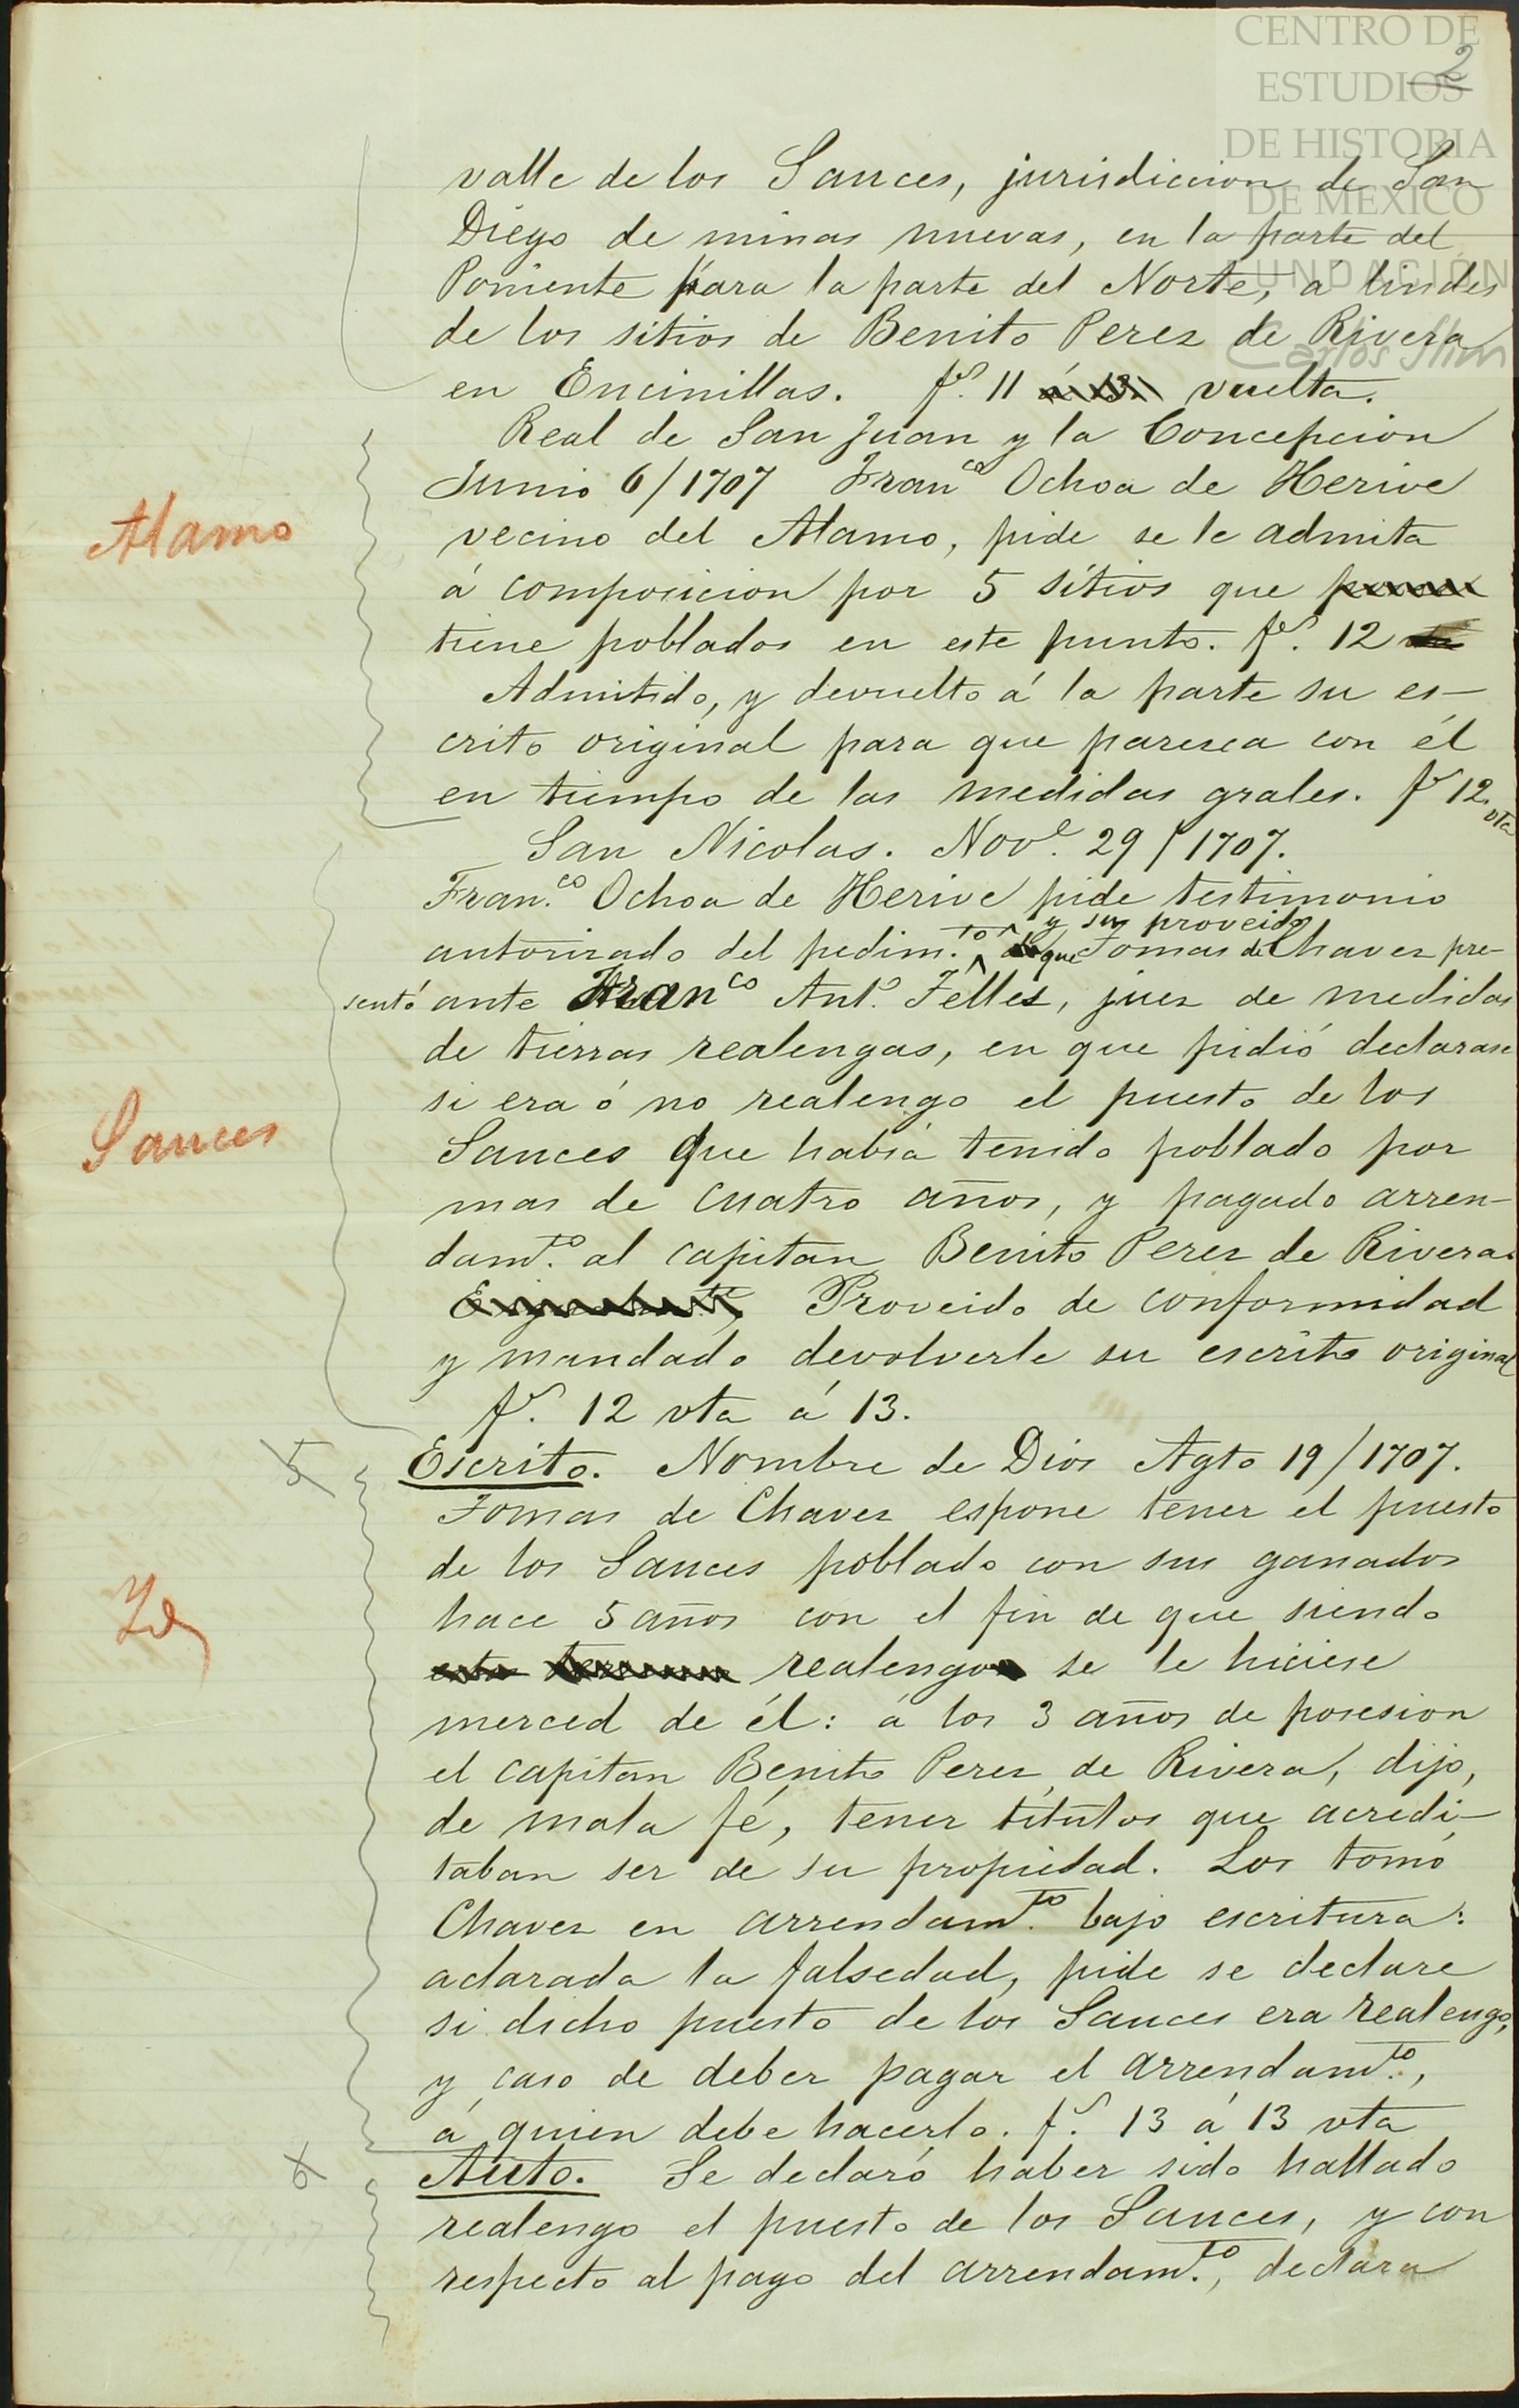 CENTRO DE
ESTUDIOS
DE HISTORIA
DE MEXICO
FUNDACIÓN
Carlos Slim
2
valle de los Sauces, jurisdiccion de San
Diego de minas nuevas, en la parte del
Poniente para la parte del Norte, á lindes
de los sitios de Benito Perez de Rivera
en Encinillas. fs. 11 á 13 vuelta.
Real de San Juan y la Concepcion
Junio 6/1707 Franco Ochoa de Herive
Alamo
vecino del Alamo, pide se le admita
á composicion por 5 sitios que
tiene poblados en este punto. fs. 12
Admitido, y devuelto á la parte su es-
crito original para que paresca con él
en tiempo de las medidas grales. fs 12 vta
San Nicolas. Nove. 29/1707.
Fran.co Ochoa de Herive pide testimonio
y su proveido
autorizado del pedim.to que Tomas de Chavez pre-
sentó ante Franco Anto. Felles, juez de medidas
de tierras realengas, en que pidió declarase
si era ó no realengo el puesto de los
Sauces
Sauces que habia tenido poblado por
mas de cuatro años, y pagado arren-
damto. al capitan Benito Perez de Rivera.
Proveido de conformidad
y mandado devolverle su escrito original
fs. 12 vta á 13.
5
Escrito. Nombre de Dios Agto 19/1707.
Tomas de Chavez espone tener el puesto
de los Sauces poblado con sus ganados
Id
hace 5 años con el fin de que siendo
realengo se le hiciese
merced de él: á los 3 años de posesion
el capitan Benito Perez de Rivera, dijo,
de mala fé, tener títulos que acredi-
taban ser de su propiedad. Los tomó
Chavez en arrendamto. bajo escritura:
aclarada la falsedad, pide se declare
si dicho puesto de los Sauces era realengo,
y caso de deber pagar el arrendamto.,
á quien debe hacerlo. fs. 13 á 13 vta
6
Auto. Se declaró haber sido hallado
realengo el puesto de los Sauces, y con
respecto al pago del arrendamto., declara